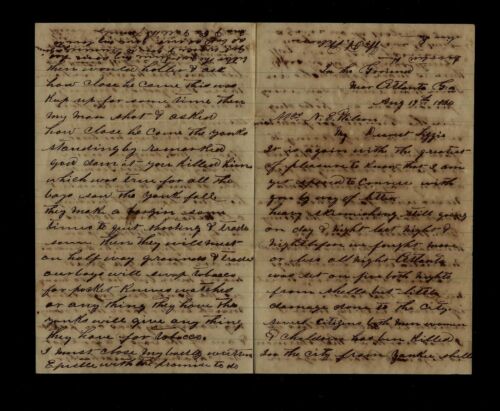 In the Ground
Near Atlanta Ga
Aug 13th 1864
Mrs N. E. Wilson
My Dearest Lizzie
It is again with the greatest
of pleasure to know that I am
yet spared to Convrse with
you by way of letter
heavy skirmishing still going
on day & night last night &
night before we fought more
or less all night Atlanta
was set on fire both nights
from shells but little
damage done to the City
several Citizens both men women
& children has bin killed
in the City from Yankee shells
then would holler & ask
how close he came this was
kep up for some time then
my man shot & asked
how close he came the yanks
standing by remarked
god damn you you killed him
which was true for all the
boys saw the yank fall
they make a bargin some
times to quit shooting & trade
some then they will meet
on half way grounds & trade
our boys will swap tobacco
for pocket knives watches
or any thing they have the
yanks will give any thing
they have for tobacco.
I must close my badly written
Epistle with the promise to do